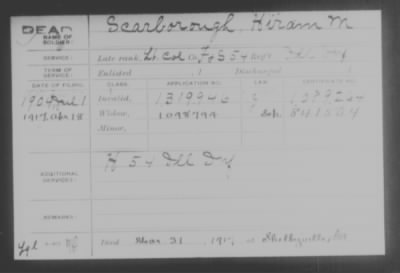 DEAD
NAME OF SOLDIER: Scarborough, Hiram M
SERVICE: Late rank, Lt Col Co. F&S 54 Reg't Ill Inf
TERM OF SERVICE: Enlisted , 1 Discharged , 1
DATE OF FILING. CLASS. APPLICATION NO. LAW. CERTIFICATE NO.
1904 Jul 1 Invalid, 1319946
1917 Apr 18 Widow, 1098794 841504
Minor,
ADDITIONAL SERVICES: K 54 Ill Inf
REMARKS:
Died Mar 31, 1917, at Shelbyville,